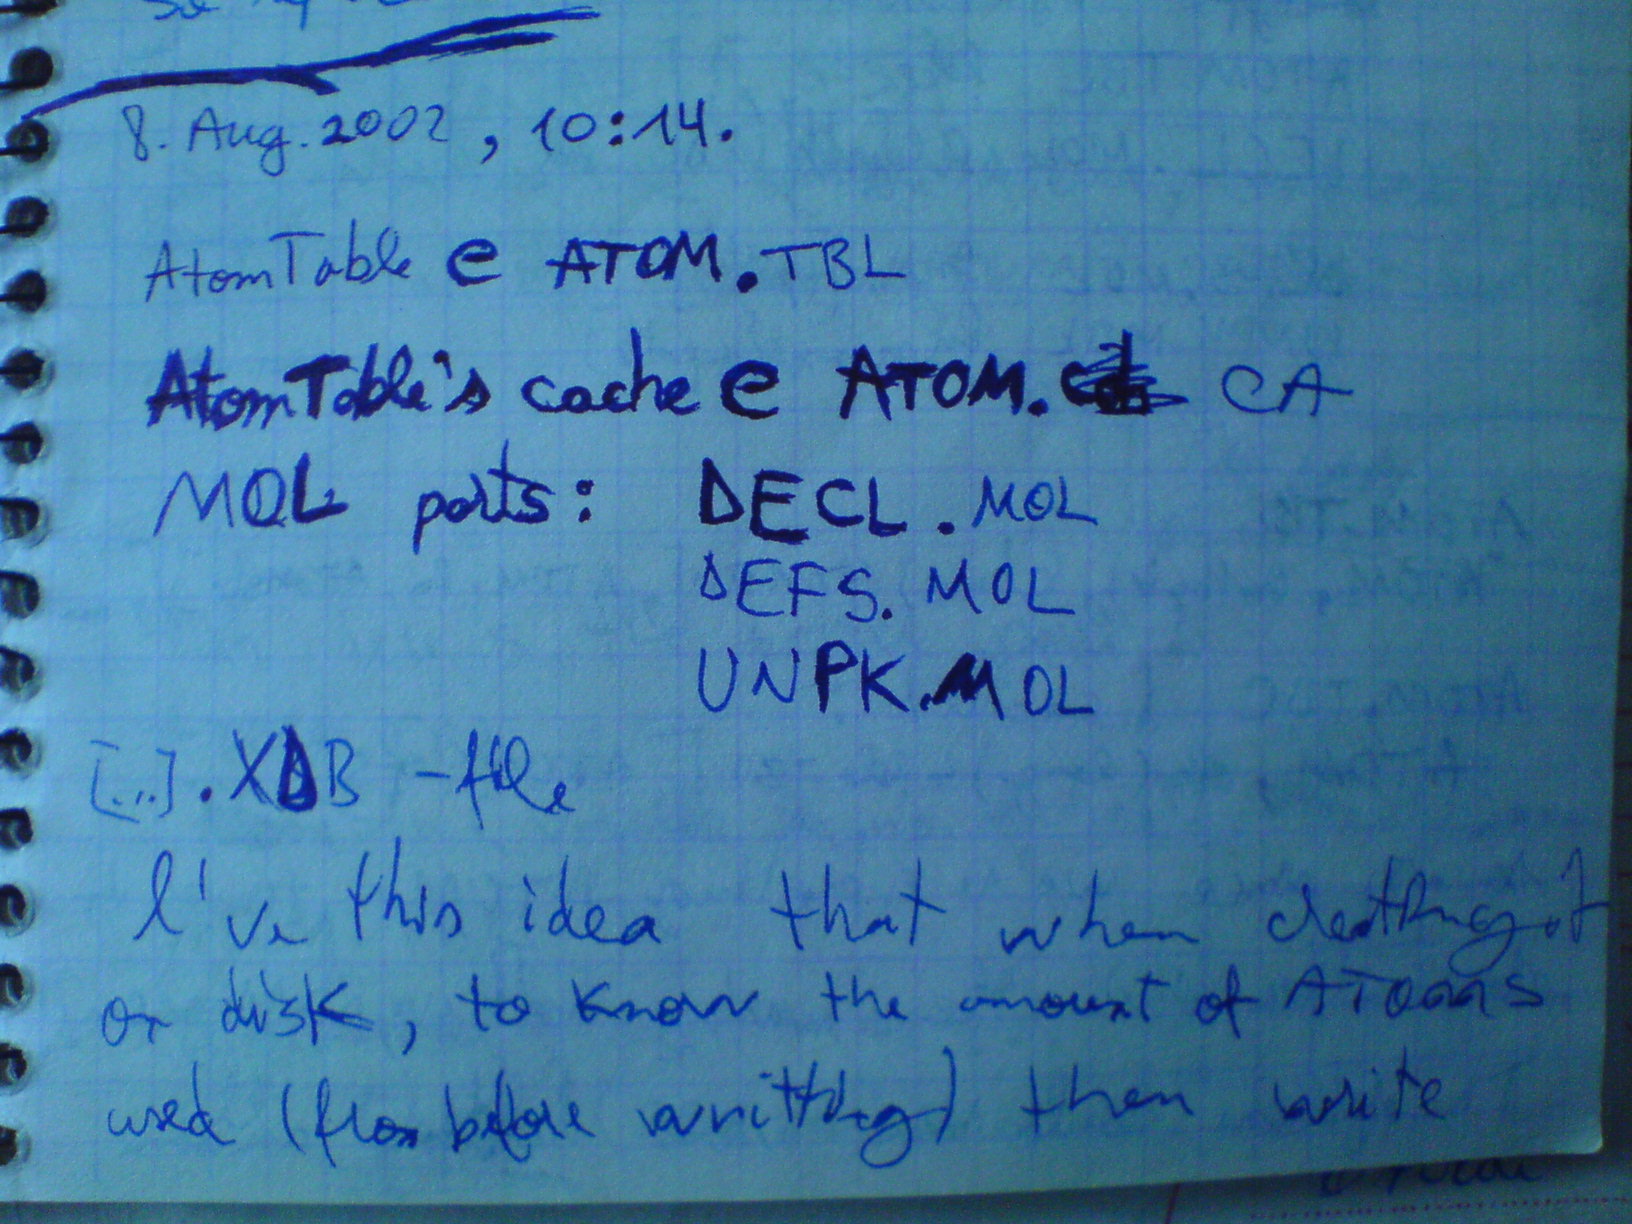 8. Aug. 2002, 10:14.
AtomTable e ATOM.TBL
AtomTable's cache e ATOM. CA
MOL parts: DECL.MOL
DEFS.MOL
UNPK.MOL
[...].XDB -file
I've this idea that when creating it
on disk, to know the amount of ATOMs
used (from before writting) then write